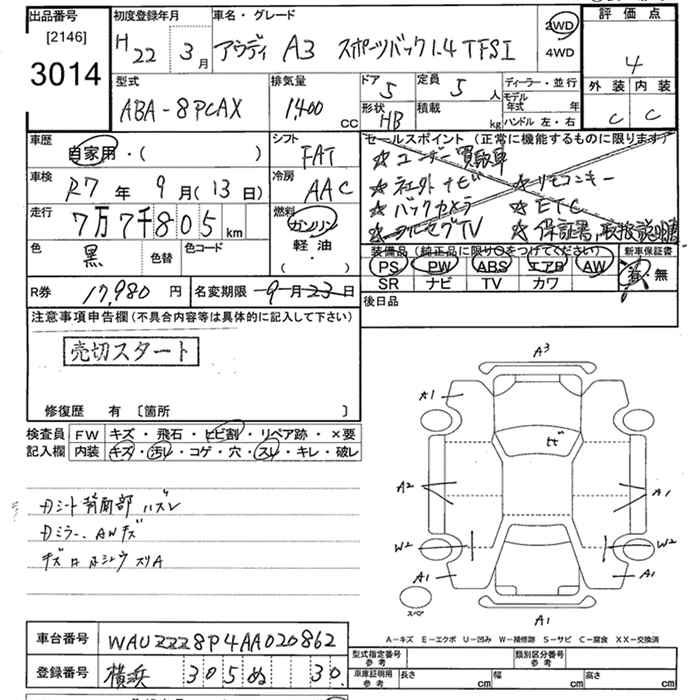 出品番号 初度登録年月 車名・グレード 評価点
[2146] H 22年 3月 アウディ A3 スポーツバック1.4 TFSI 2WD 4WD 4
3014 外装 内装
型式 排気量 ドア 定員 ディーラー・並行
ABA-8PCAX 1400 CC 5 5人 モデル年式 年
形状 積載 ハンドル 左・右 C C
HB kg
車歴 シフト セールスポイント (正常に機能するものに限ります)
自家用・( ) FAT ☆ユーザー買取車
車検 冷房 ☆社外ナビ ☆リモコンキー
R7年 9月(13日) AAC ☆バックカメラ ☆ETC
走行 燃料 ☆フルセグTV ☆保証書、取扱説明書
7万7千805km ガソリン 軽油 ( ・ )
色 色替 色コード 装備品 (純正品に限り○をつけてください) 新車保証書
黒 PS PW ABS エアB AW 有・無
SR ナビ TV カワ
R券 17,980円 名変期限 9月23日 後日品
注意事項申告欄 (不具合内容等は具体的に記入して下さい)
売切スタート
修復歴 有 [箇所 ]
検査員 FW キズ・飛石・ヒビ割・リペア跡・×要
記入欄 内装 キズ・汚レ・コゲ・穴・スレ・キレ・破レ
Dシート背面部ハズレ
Dミラー、AWキズ
A3
A1
A2 A1
W2 W2
A1 A1
A1
スペア
A-キズ E-エクボ U-凹み W-補修跡 S-サビ C-腐食 XX-交換済
車台番号 WAUZZZ8P4AA020862 型式指定番号 参考 類別区分番号 参考
登録番号 横浜 305 ぬ 30 車庫証明用 参考 長さ cm 幅 cm 高さ cm